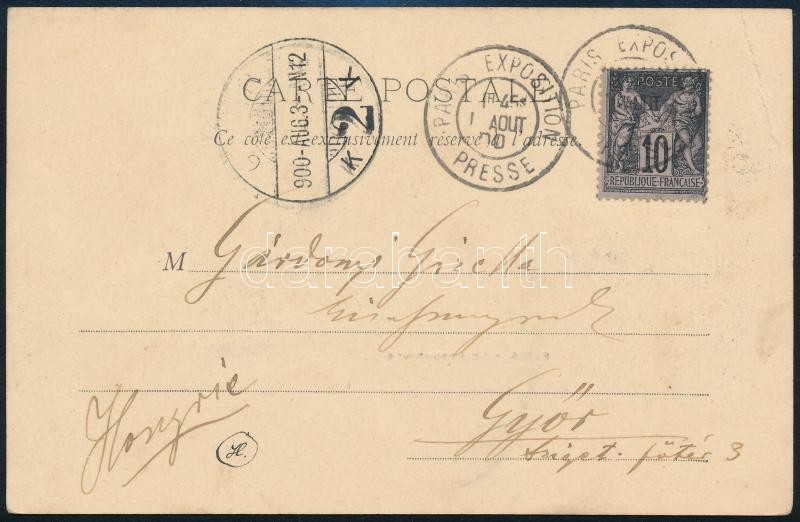 CARTE POSTALE
Ce côté est exclusivement réservé à l'adresse.
900-AUG.3- N12
K 2
PARIS EXPOSITION
1 AOUT
PRESSE
PARIS EXPOS
POSTE
10
RÉPUBLIQUE-FRANÇAISE
M Gárdonyi Gizella
darabanth
Győr
Sziget. főtér 3
Hongrie
H.